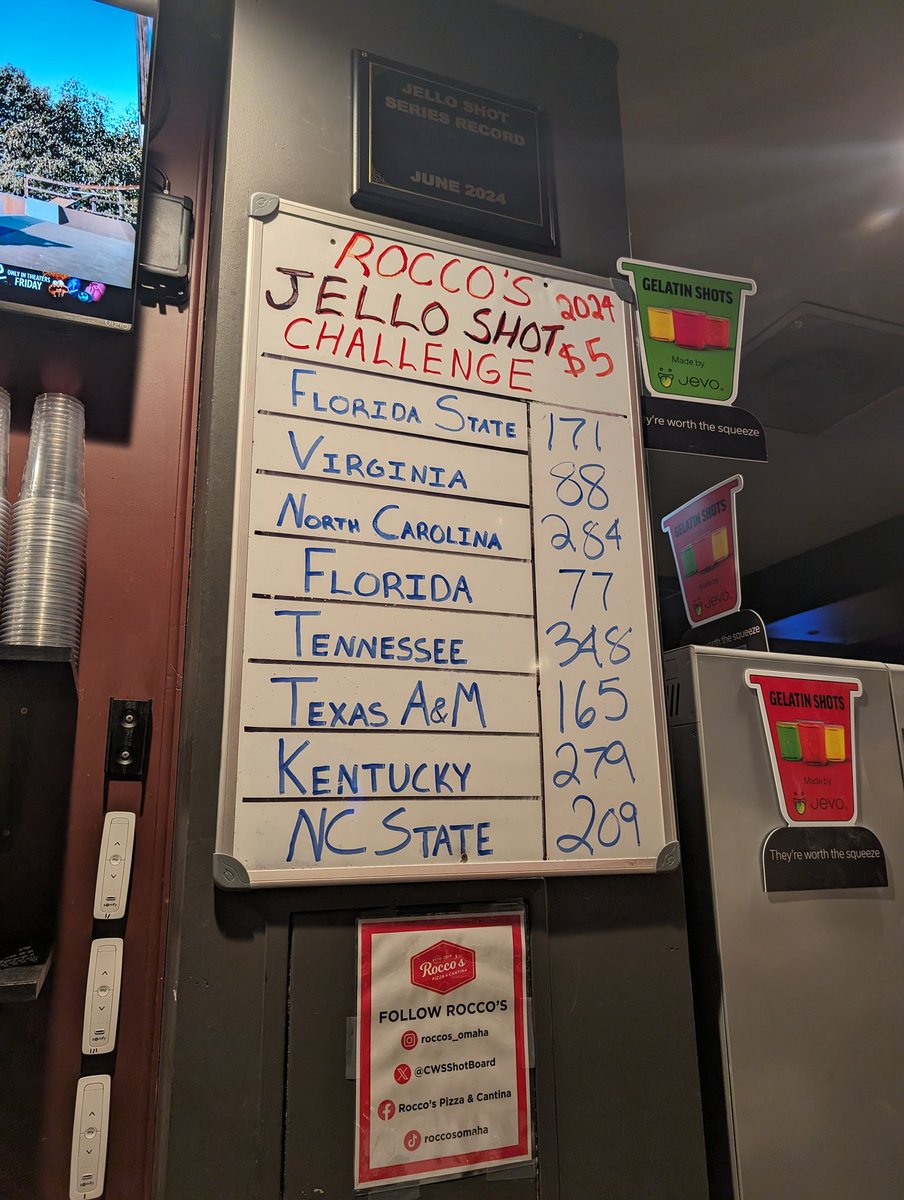 JELLO SHOT
SERIES RECORD
JUNE 2024
ONLY IN THEATERS
FRIDAY
VIZIO
ROCCO'S
2024
JELLO SHOT
CHALLENGE
$5
FLORIDA STATE 171
VIRGINIA 88
NORTH CAROLINA 284
FLORIDA 77
TENNESSEE 348
TEXAS A&M 165
KENTUCKY 279
NC STATE 209
GELATIN SHOTS
Made by
Jevo.
ey're worth the squeeze
GELATIN SHOTS
Made by
Jevo.
worth the squeeze
GELATIN SHOTS
Made by
Jevo.
They're worth the squeeze
Rocco's
PIZZA & CANTINA
FOLLOW ROCCO'S
roccos_omaha
@CWSShotBoard
Rocco's Pizza & Cantina
roccosomaha
somfy
somfy
somfy